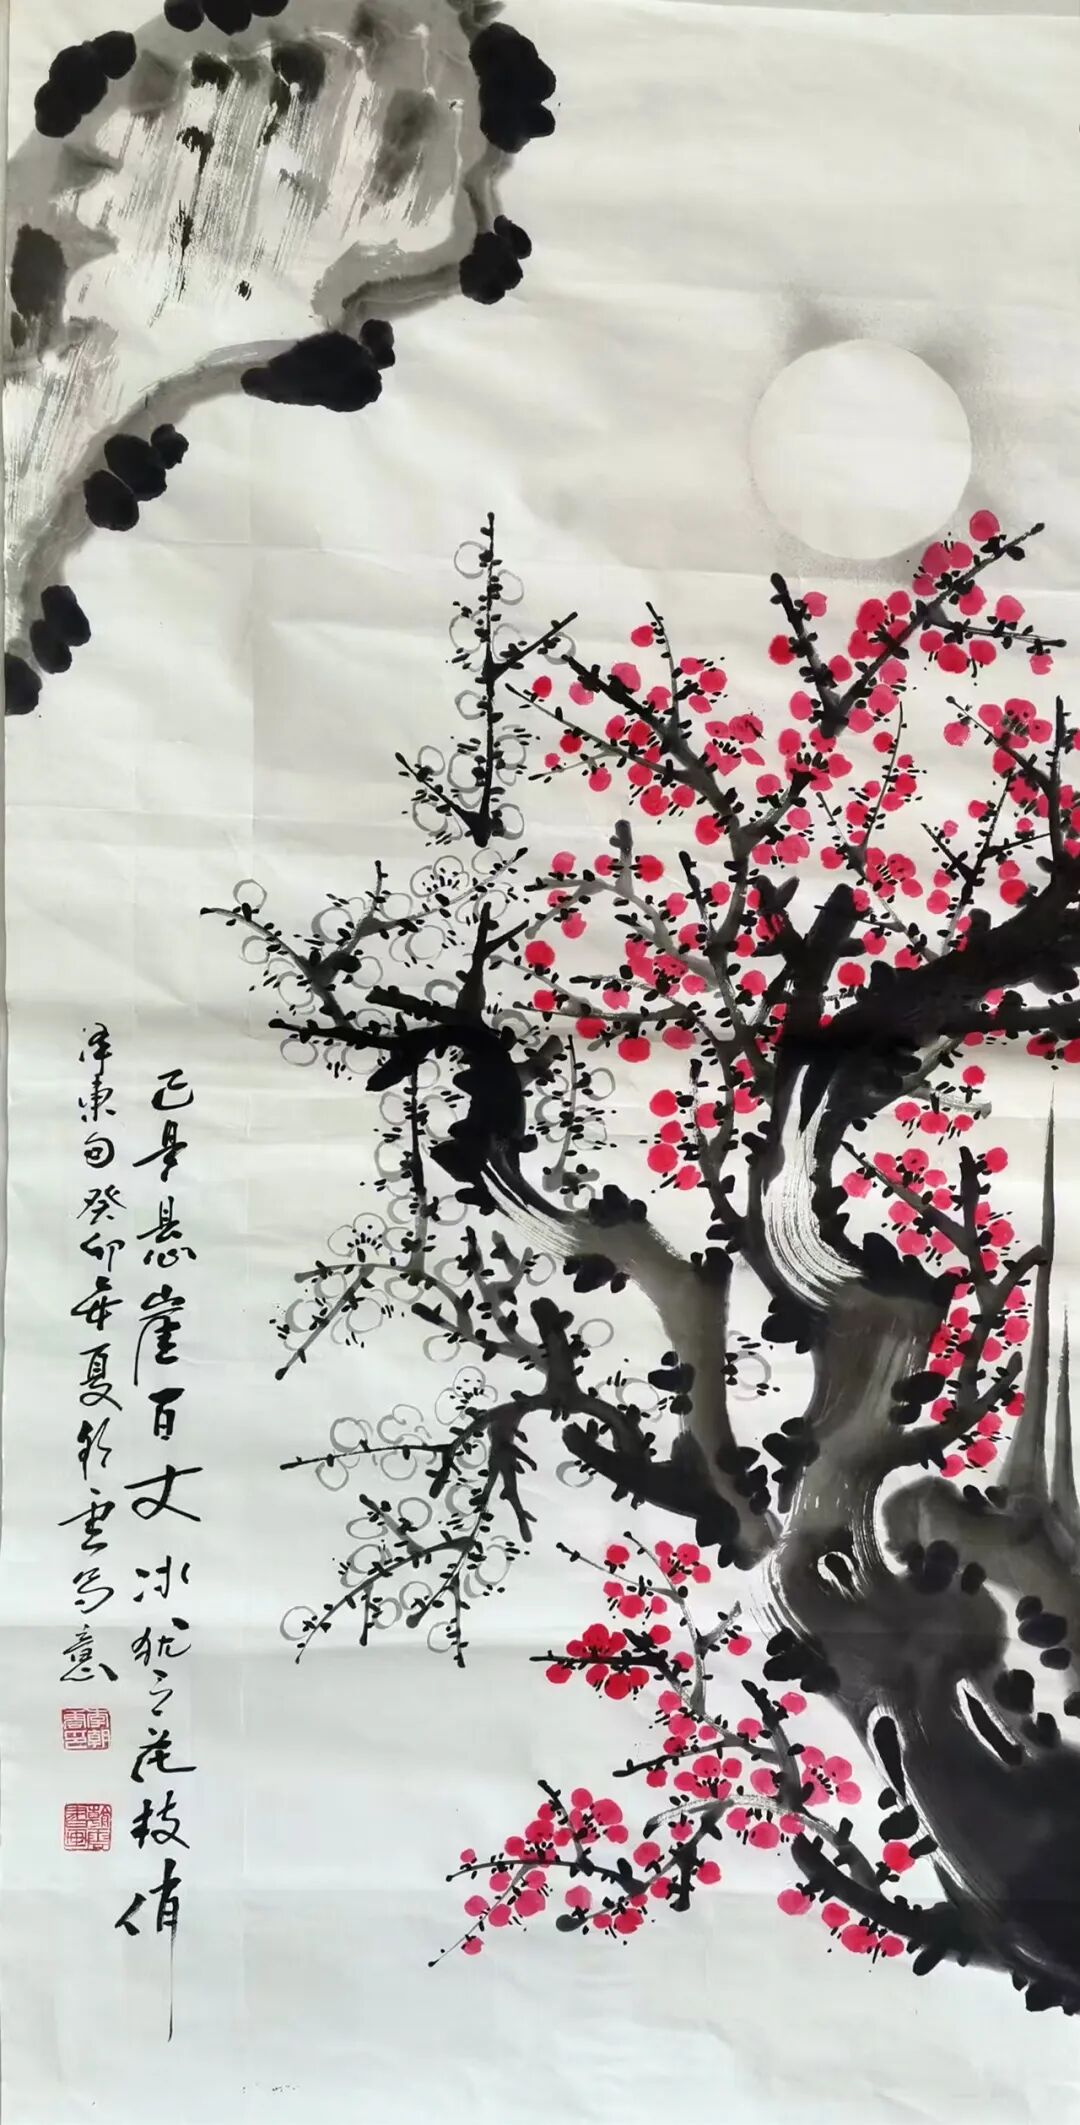 已是悬崖百丈冰犹有花枝俏
泽東句癸卯年夏云写意